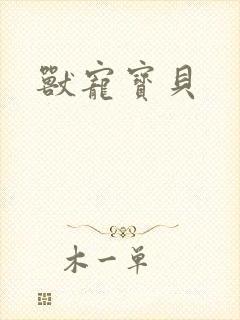 獸寵寶貝
木一单